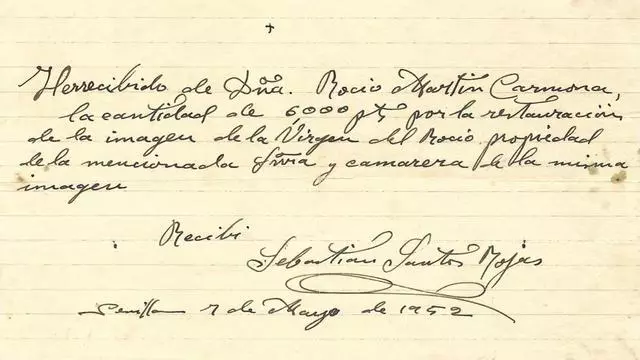 He recibido de Dña. Rocio Martin Carmona,
la cantidad de 6,000 pts por la restauración
de la imagen de la Virgen del Rocio propiedad
de la mencionada Sñra y camarera de la misma
imagen
Recibi
Sebastián Santos Rojas
Sevilla 7 de Mayo de 1952